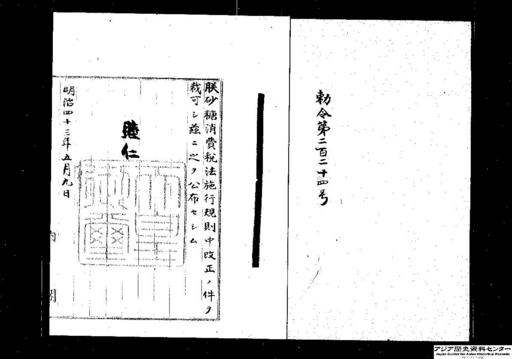 勅令第二百二十四号
朕砂糖消費税法施行規則中改正ノ件ヲ
裁可シ茲ニ之ヲ公布セシム
睦仁
明治四十三年五月九日
内閣
アジア歴史資料センター
Japan Center for Asian Historical Records